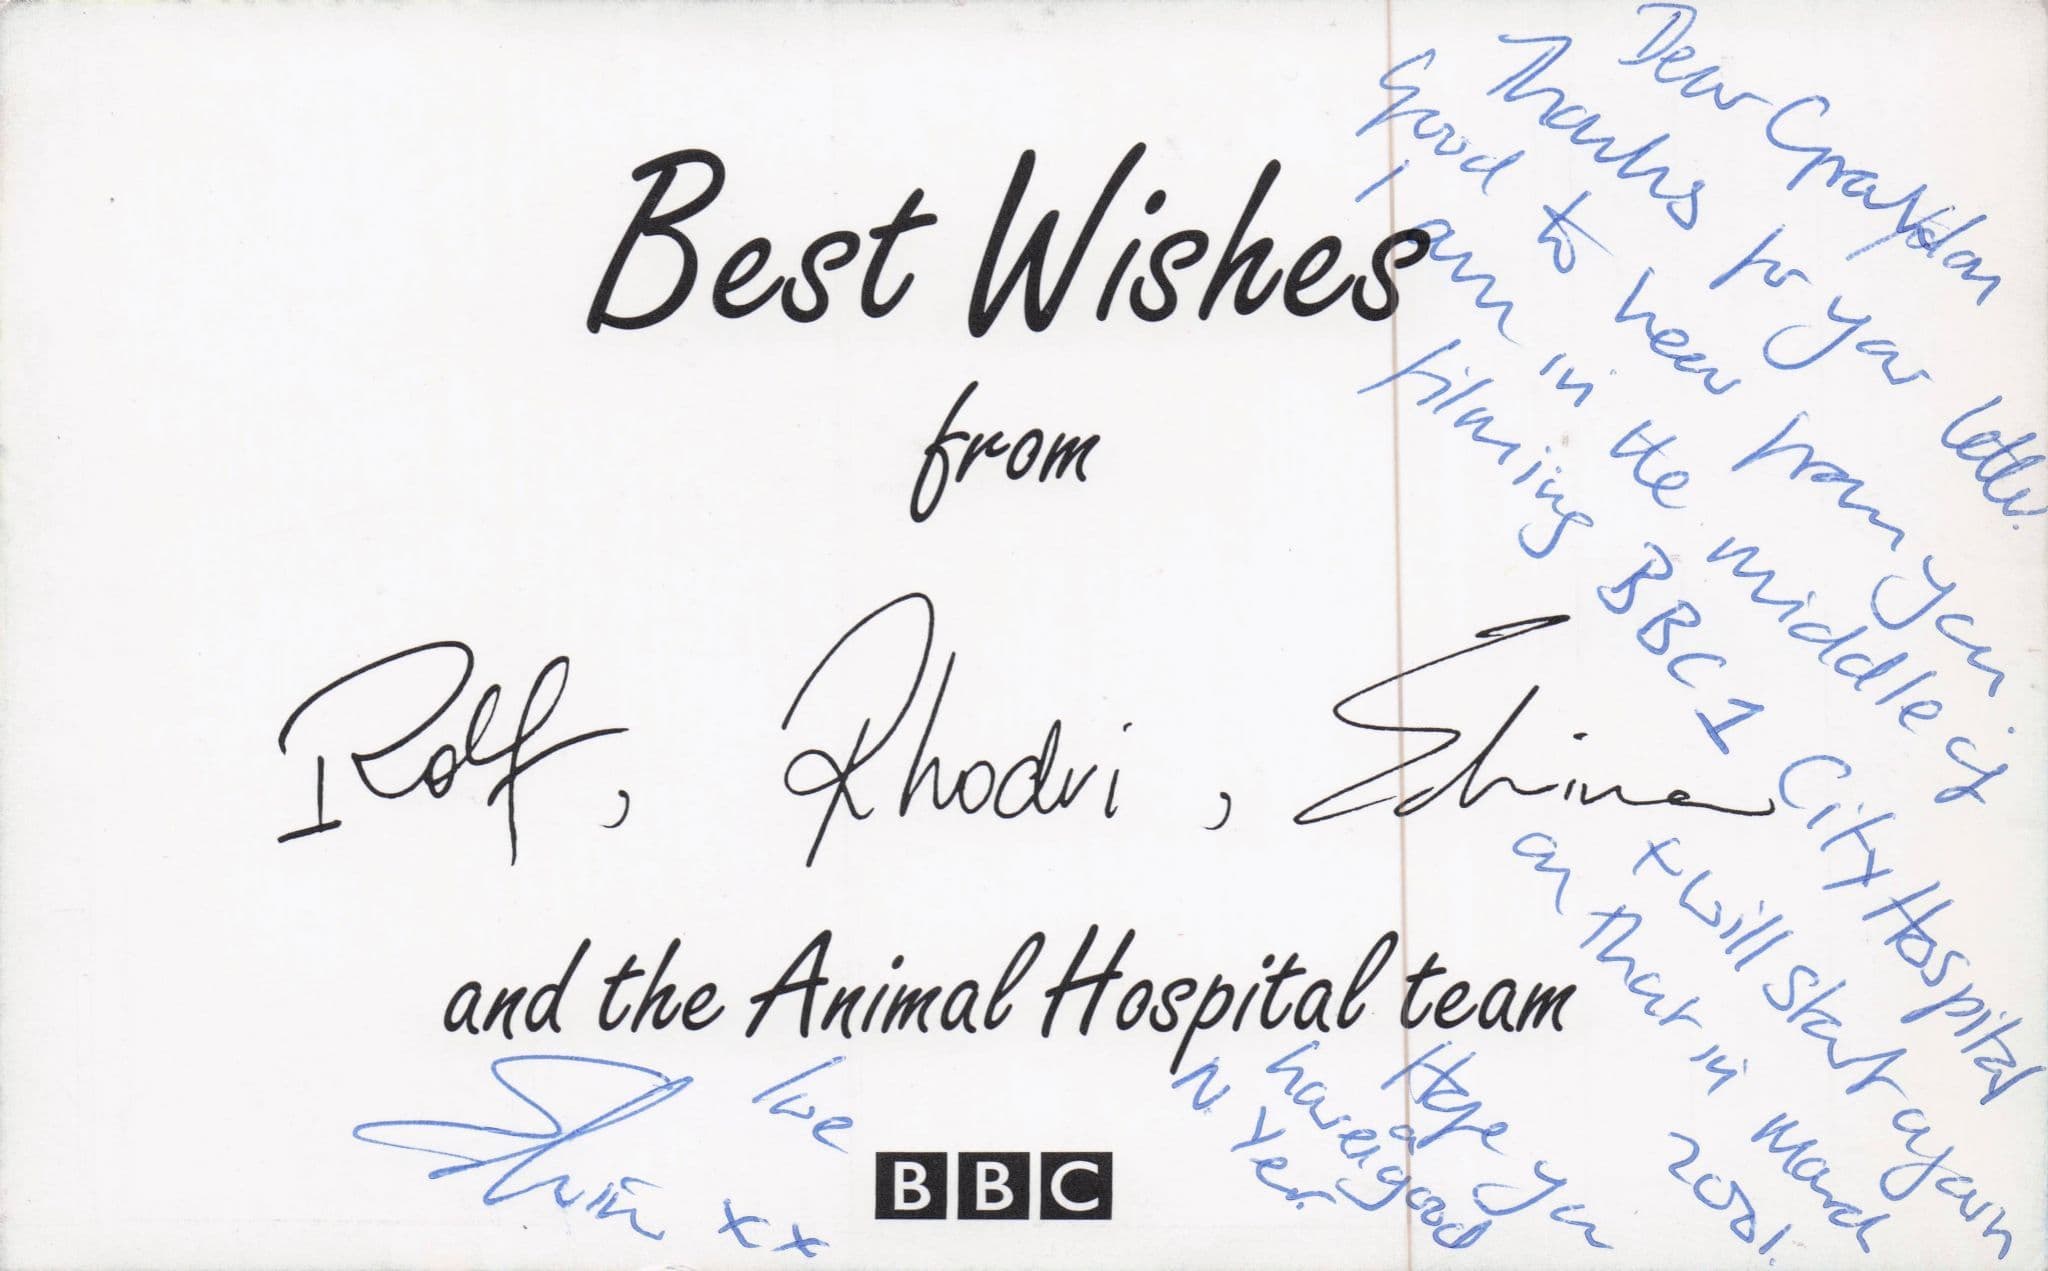 Best Wishes
from
Rolf, Rhodri, Shina
and the Animal Hospital team
BBC
Dear Graham
Thanks for your letter.
Good to hear from you
I am in the middle of
filming BBC 1 City Hospital
x will start again
on that in March
2001.
Hope you
have a good
N. Year.
love
xx